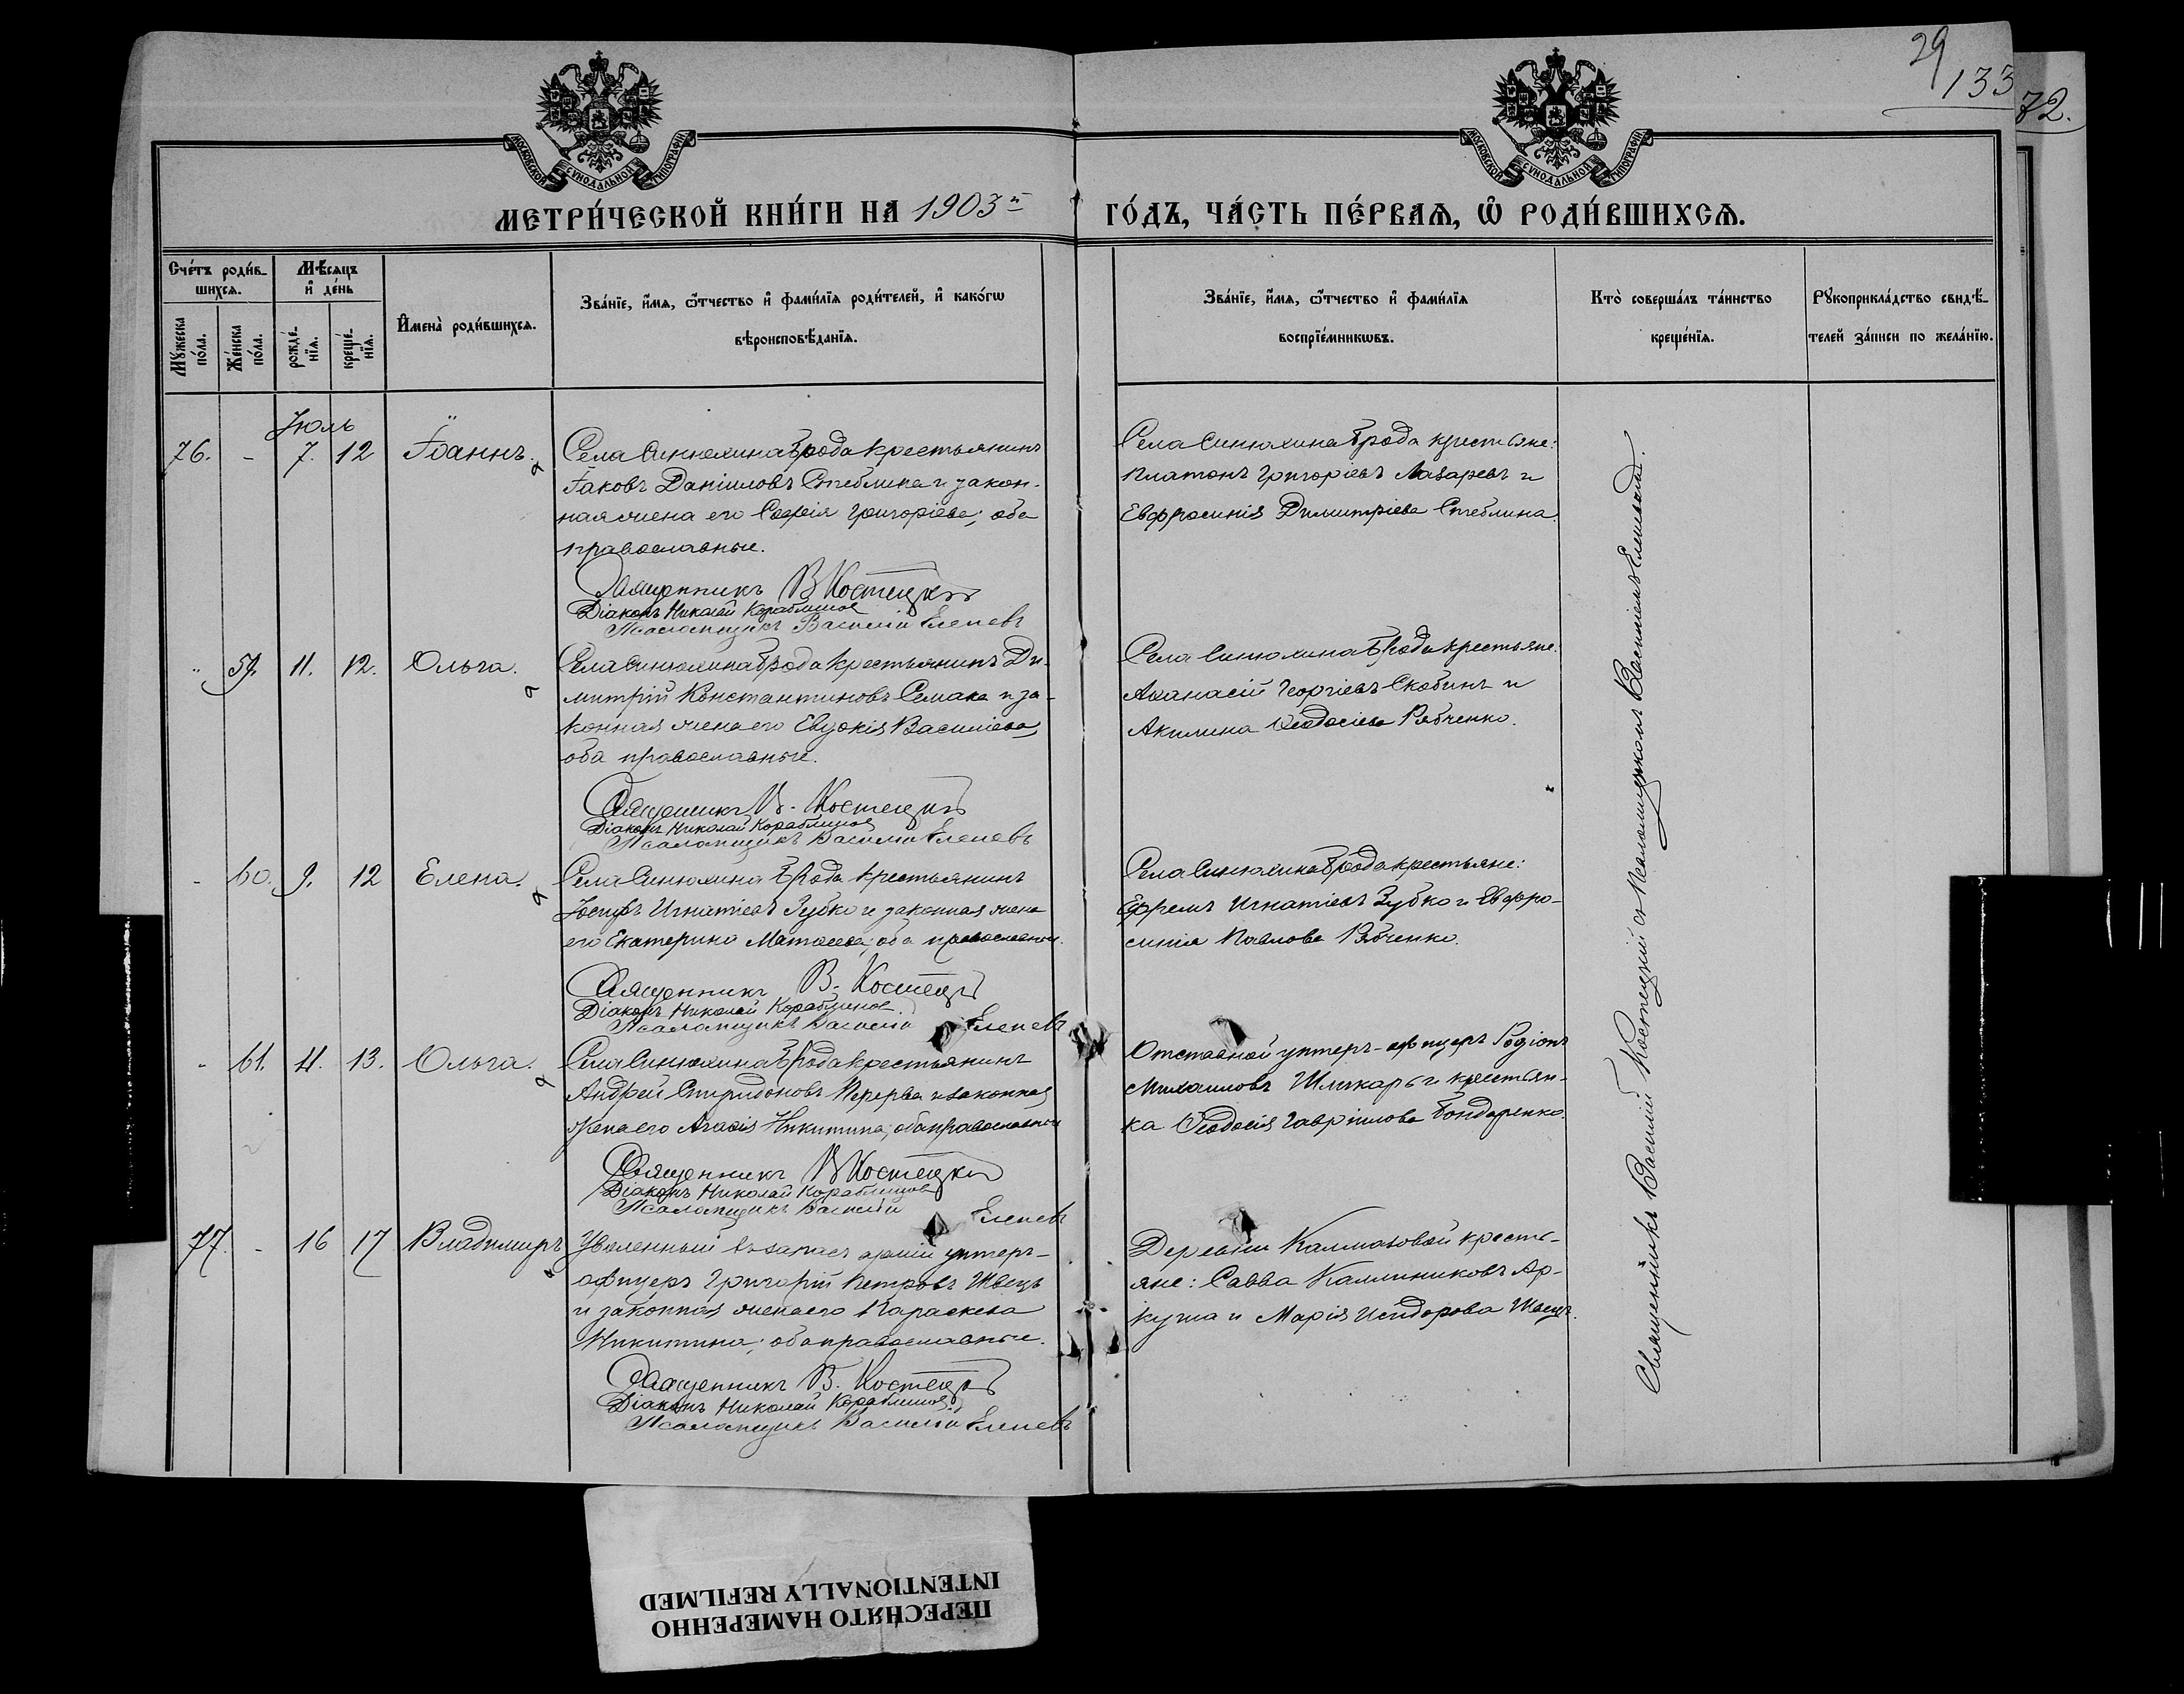 29
133
72.
МОСКОВСКОЙ СѴНОДАЛЬНОЙ ТИПОГРАФІИ
МОСКОВСКОЙ СѴНОДАЛЬНОЙ ТИПОГРАФІИ
МЕТРИ́ЧЕСКОЙ КНИ́ГИ НА 1903й ГО́ДЪ, ЧА́СТЬ ПЕ́РВАѦ, Ѡ҆ РОДИ́ВШИХСѦ.
Сче́тъ роди́в-
шихсѧ.
Мꙋ́жеска
по́ла.
Же́нска
по́ла.
Мѣ́сѧцъ
и҆ де́нь
рожде́-
нїѧ.
креще́-
нїѧ.
И҆мена̀ роди́вшихсѧ.
Зва́нїе, и҆́мѧ, ѻ҆́тчество и҆ фами́лїѧ роди́телей, и҆ како́гѡ
вѣроисповѣ́данїѧ.
Зва́нїе, и҆́мѧ, ѻ҆́тчество и҆ фами́лїѧ
воспрїе́мникѡвъ.
Кто̀ соверша́лъ та́инство
креще́нїѧ.
Рꙋкоприкла́дство свидѣ́-
телей за́писи по жела́нїю.
Іюль
76. - 7. 12 Іоаннъ.
Села Синюхина Брода крестьянинъ
Іаковъ Даніиловъ Стеблина и закон-
ная жена его Софія Григоріева; оба
православные.
Священникъ В Костецкій
Діаконъ Николай Кораблиновъ
Псаломщикъ Василій Елепевъ
Села Синюхина Брода крестьяне:
Платонъ Григоріевъ Лазаревъ и
Евфросинія Димитріева Стеблина.
" 59. 11. 12. Ольга.
Села Синюхина Брода крестьянинъ Ди-
митрій Константиновъ Семака и за-
конная жена его Евдокія Василіева,
оба православные.
Священникъ В. Костецкій
Діаконъ Николай Кораблиновъ
Псаломщикъ Василій Елепевъ
Села Синюхина Брода крестьяне:
Аѳанасій Георгіевъ Скобинъ и
Акилина Ѳеодосіева Рябченко.
- 60. 9. 12 Елена.
Села Синюхина Брода крестьянинъ
Іосифъ Игнатіевъ Зубко и законная жена
его Екатерина Матѳеева, оба православные.
Священникъ В. Костецкій
Діаконъ Николай Кораблиновъ
Псаломщикъ Василій Елепевъ
Села Синюхина Брода крестьяне:
Ефремъ Игнатіевъ Зубко и Евфро-
синія Павлова Рябченко.
- 61. 11. 13. Ольга.
Села Синюхина Брода крестьянинъ
Андрей Спиридоновъ Перерва и законная
жена его Агаѳія Никитина; оба православные
Священникъ В Костецкій
Діаконъ Николай Кораблиновъ
Псаломщикъ Василій Елепевъ
Отставной унтеръ-офицеръ Родіонъ
Михаиловъ Шликарь и крестьян-
ка Ѳеодосія Гавріилова Бондаренко.
77. - 16 17 Владимиръ
Уволенный въ запасъ арміи унтеръ-
офицеръ Григорій Петровъ Швецъ
и законная жена его Параскева
Никитина; оба православные.
Священникъ В. Костецкій
Діаконъ Николай Кораблиновъ
Псаломщикъ Василій Елепевъ
Деревни Калмазовой кресть-
яне: Савва Каллиниковъ Ар-
куша и Марія Исидорова Швецъ.
Священникъ Василій Костецкій съ Псаломщикомъ Василіемъ
ПЕРЕСНЯТО НАМЕРЕННО
INTENTIONALLY REFILMED